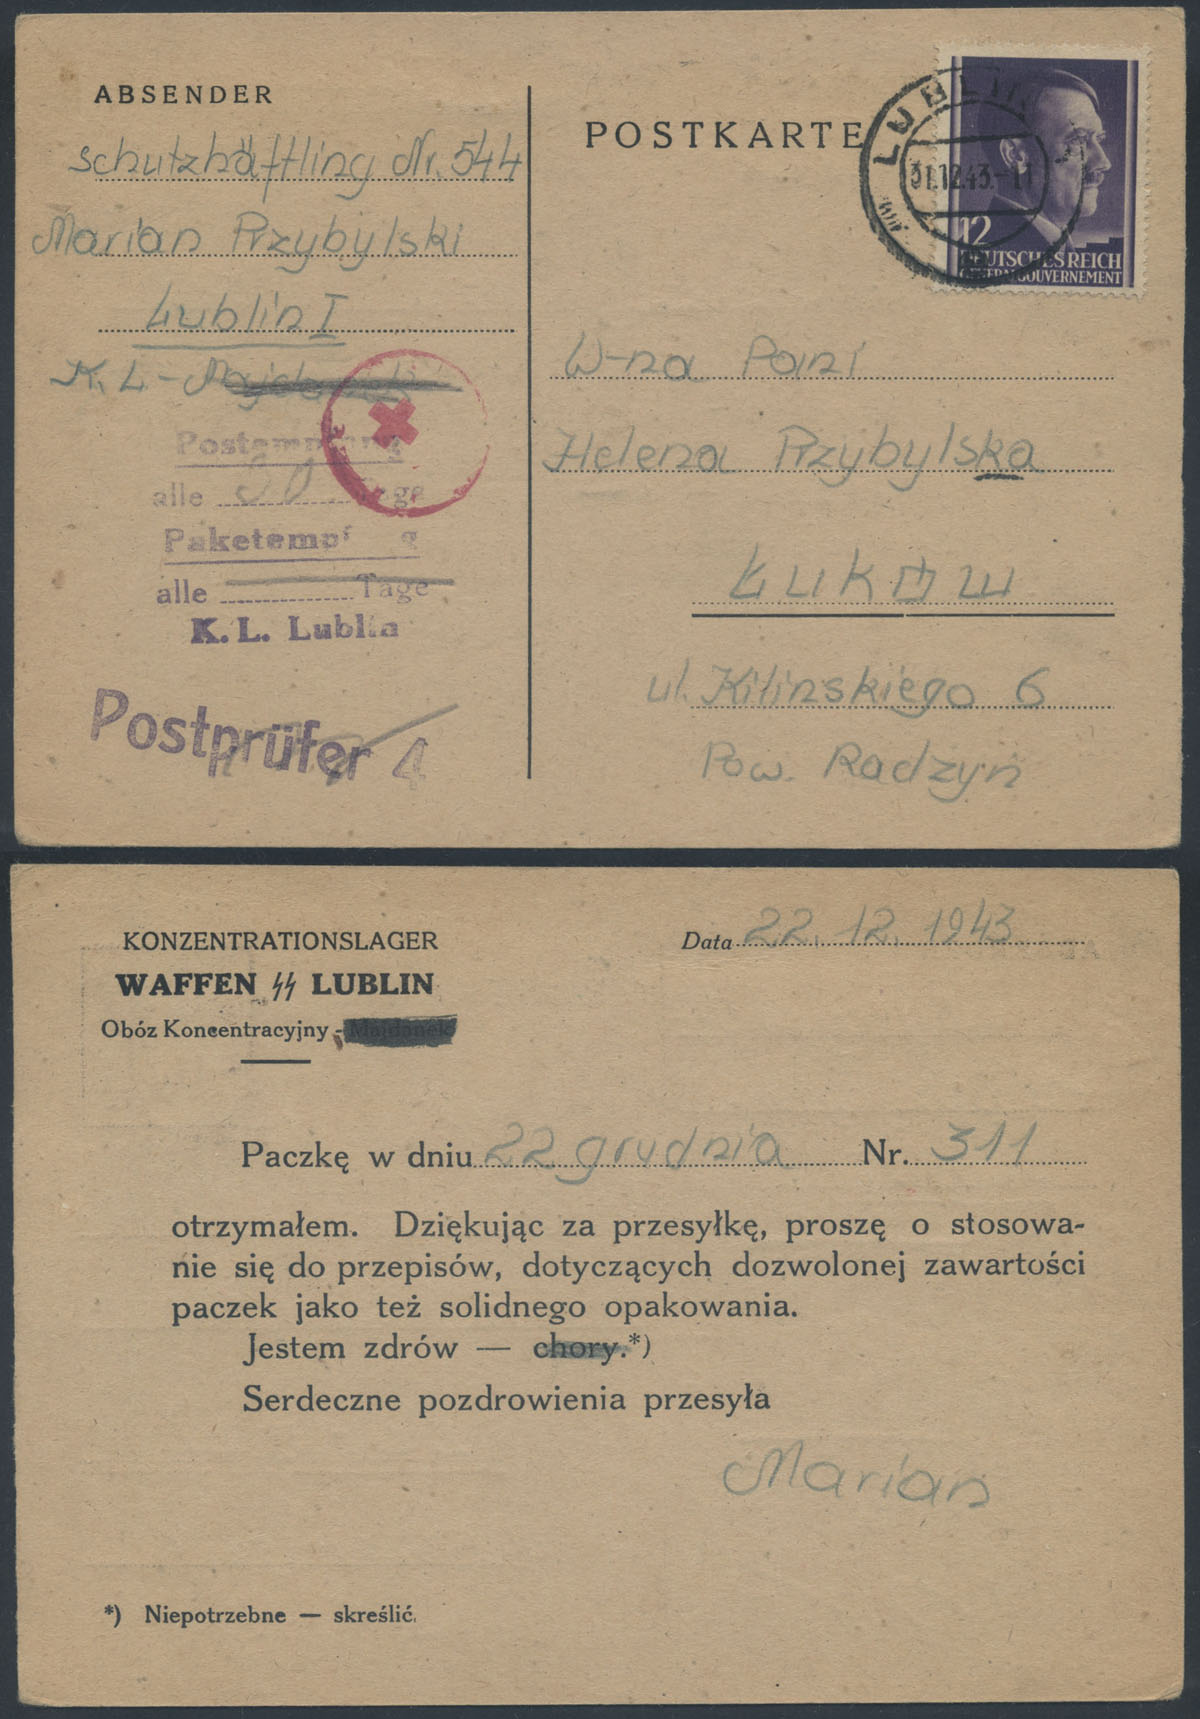 ABSENDER
Schutzhäftling Nr. 544
Marian Przybylski
Lublin I
K. L -
Postempfang
alle 30 Tage
Paketempf g
alle Tage
K. L. Lublin
Postprüfer 4
POSTKARTE
LUBLIN
31.12.43.-11
12
DEUTSCHES REICH
GENERALGOUVERNEMENT
W-na Pani
Helena Przybylska
Łuków
ul. Kilinskiego 6
Pow. Radzyń
KONZENTRATIONSLAGER
WAFFEN SS LUBLIN
Obóz Koncentracyjny - Majdanek
Data 22. 12. 1943
Paczkę w dniu 22 grudnia Nr. 311
otrzymałem. Dziękując za przesyłkę, proszę o stosowa-
nie się do przepisów, dotyczących dozwolonej zawartości
paczek jako też solidnego opakowania.
Jestem zdrów — chory.*)
Serdeczne pozdrowienia przesyła
Marian
*) Niepotrzebne — skreślić.